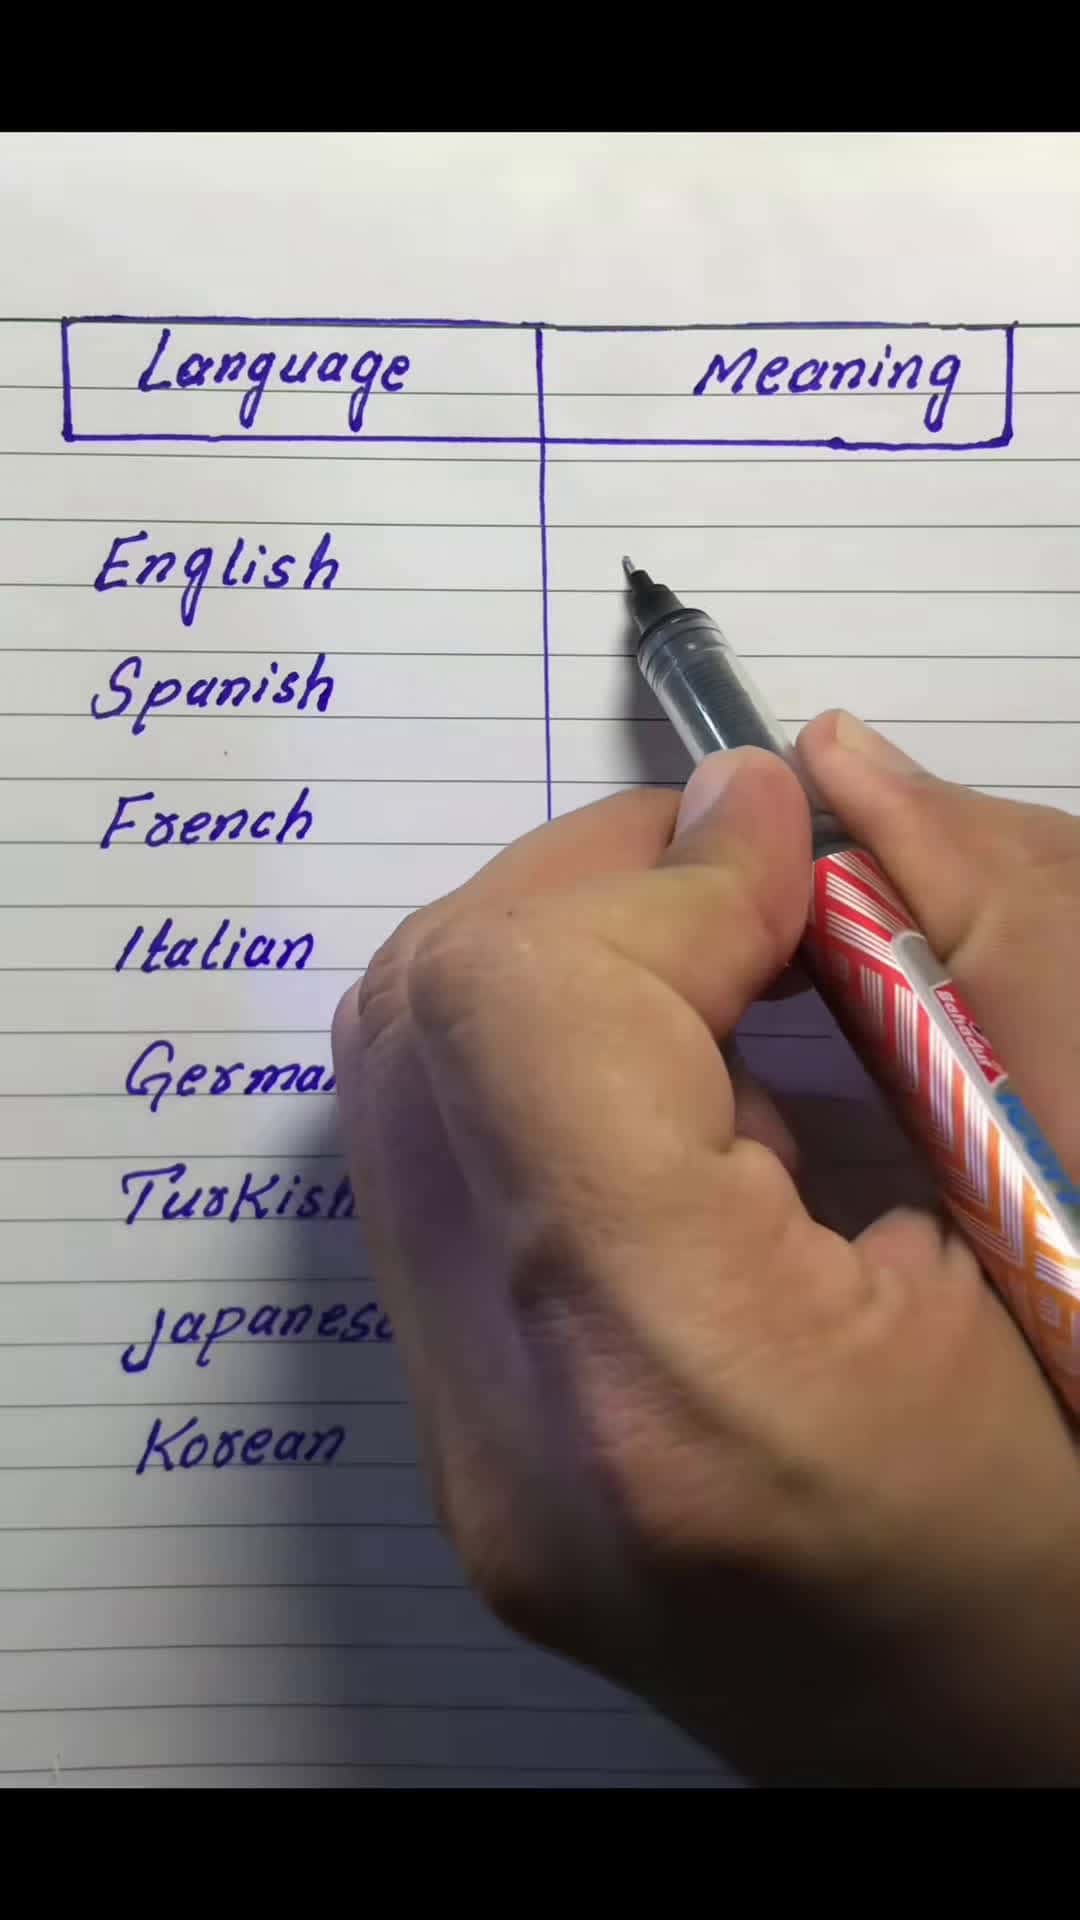 Language Meaning
English
Spanish
French
Italian
German
Turkish
Japanese
Korean
Bahadur